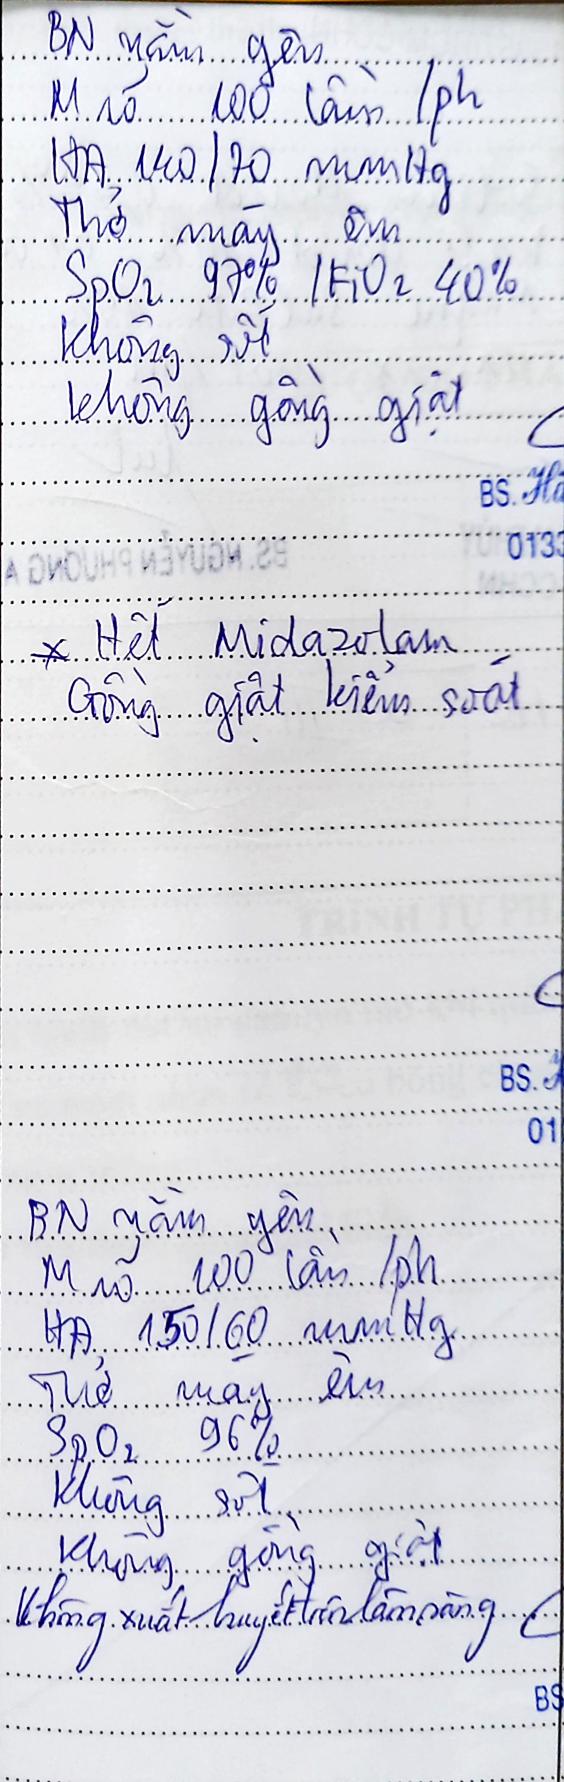 BN nằm yên
M rõ 100 lần /ph
HA 140/70 mmHg
Thở máy êm
SpO2 97% /FiO2 40%
Không sốt
không gồng giật
BS.
0133
BS. NGUYỄN PHƯƠNG A
* Hết Midazolam
Gồng giật kiểm soát
TRÌNH TỰ PH
BS.
01
BN nằm yên
M rõ 100 lần /ph
HA 150/60 mmHg
Thở máy êm
SpO2 96%
Không sốt
Không gồng giật
Không xuất huyết trên lâm sàng
BS